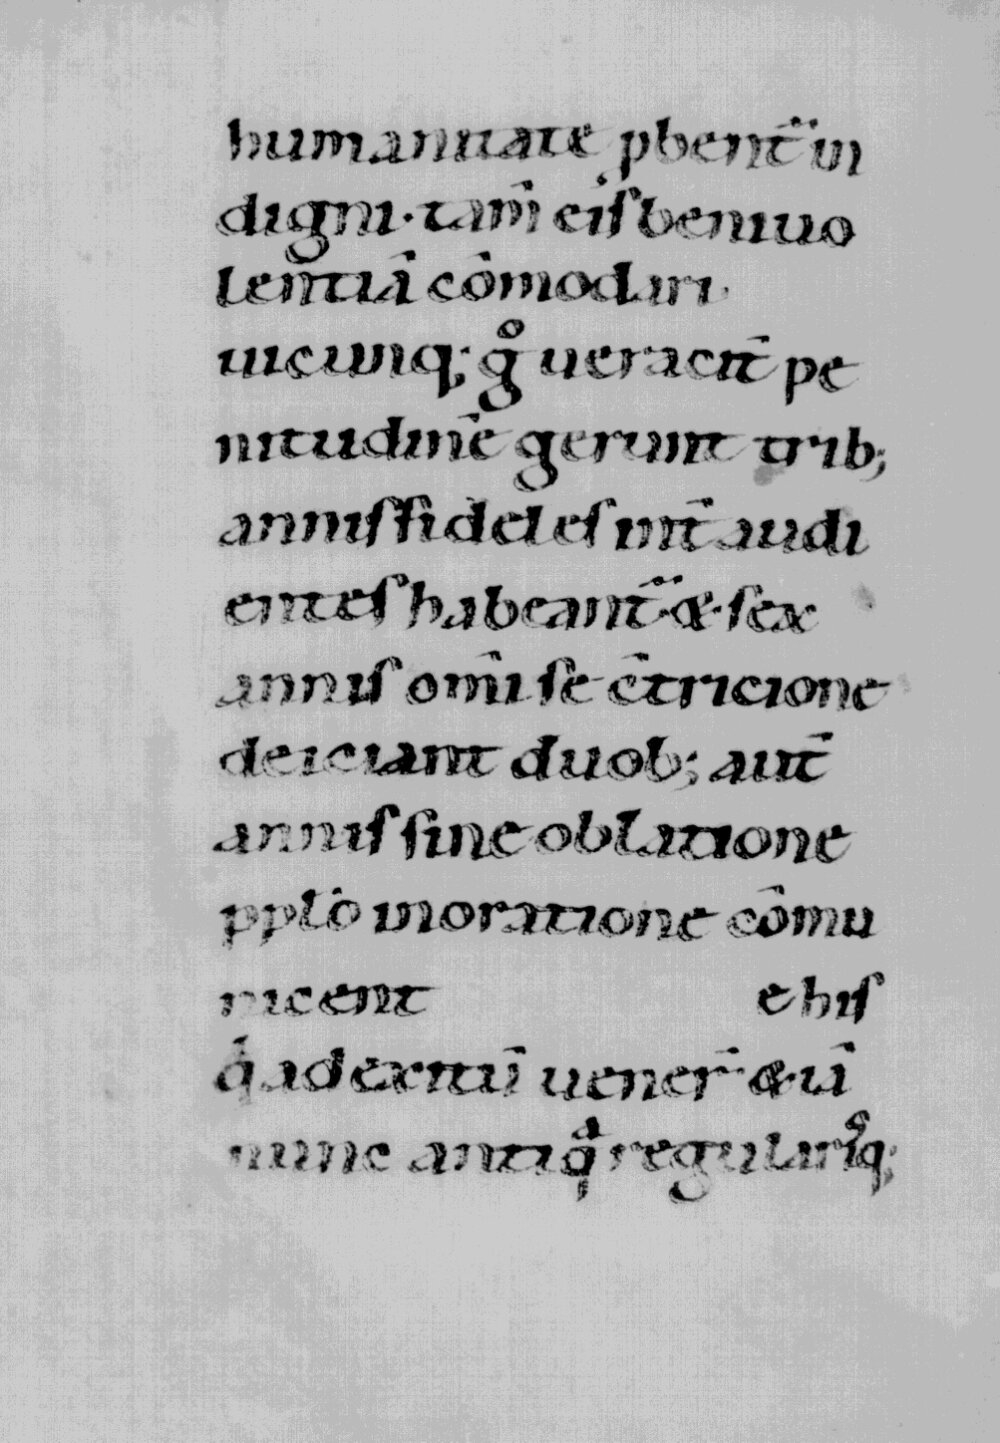 humanitate pbent̄ in
digni· tam̄ eis beniuo
lentiā cōmodari·
uicunq; g̊ ueracit̄ pe
nitudinē gerunt trib;
annis fideles int̄ audi
entes habeant̄· & sex
annis omī se c̄tricione
deiciant duob; aut̄
annis sine oblatione
pplō in oratione cōmu
nicent e his
q̇ ad exitū uener̄ & iā
nunc antiqͣ regularisq;